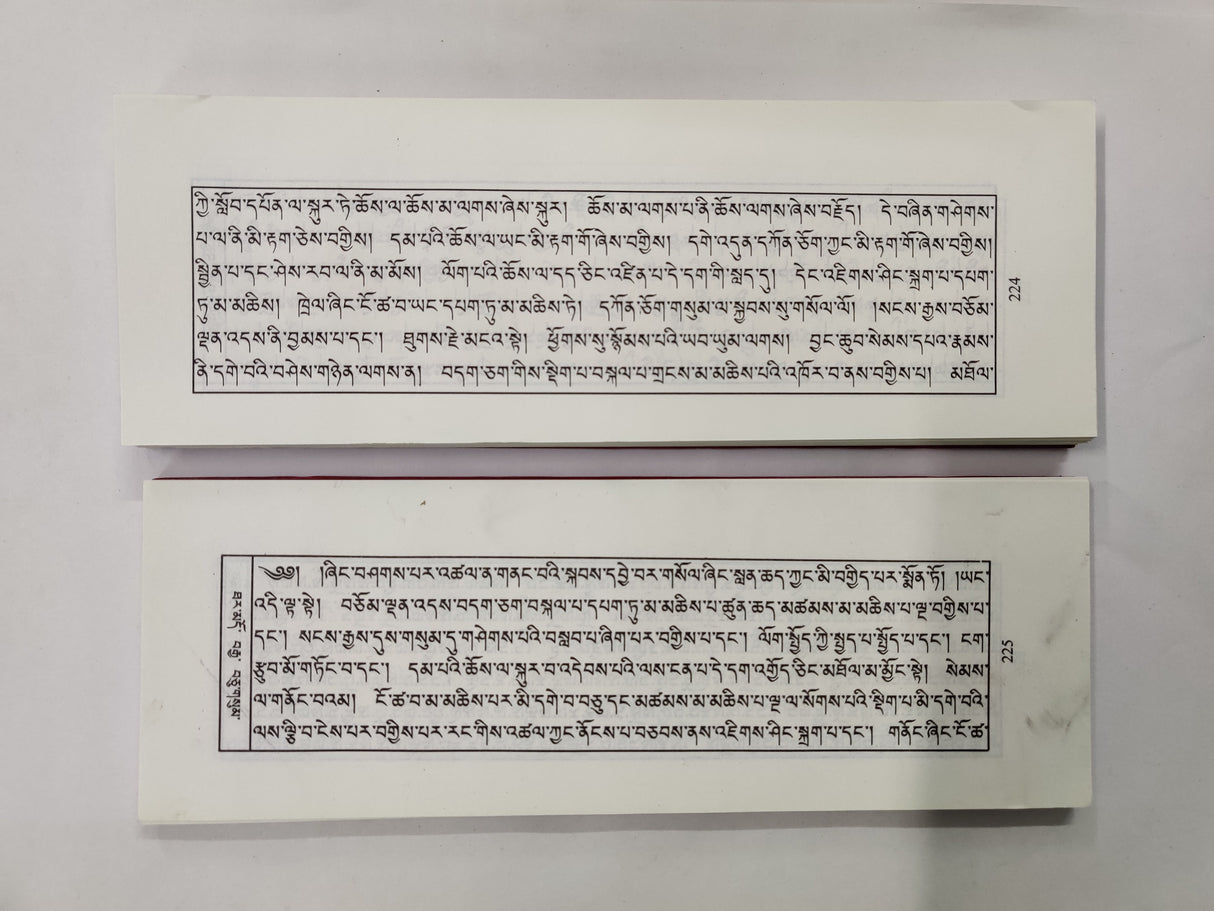 ཀྱི་སློབ་དཔོན་ལ་སྐུར་ཏེ་ཆོས་ལ་ཆོས་མ་ལགས་ཞེས་སྐུར། ཆོས་མ་ལགས་པ་ནི་ཆོས་ལགས་ཞེས་བརྗོད། དེ་བཞིན་གཤེགས་
པ་ལ་ནི་མི་རྟག་ཅེས་བགྱིས། དམ་པའི་ཆོས་ལ་ཡང་མི་རྟག་གོ་ཞེས་བགྱིས། དགེ་འདུན་དཀོན་ཅོག་ཀྱང་མི་རྟག་གོ་ཞེས་བགྱིས།
སྦྱིན་པ་དང་ཤེས་རབ་ལ་ནི་མ་མོས། ལོག་པའི་ཆོས་ལ་དད་ཅིང་འཛིན་པ་དེ་དག་གི་སླད་དུ། དེང་འཇིགས་ཤིང་སྐྲག་པ་དཔག་
ཏུ་མ་མཆིས། ཁྲེལ་ཞིང་ངོ་ཚ་བ་ཡང་དཔག་ཏུ་མ་མཆིས་ཏེ། དཀོན་ཅོག་གསུམ་ལ་སྐྱབས་སུ་གསོལ་ལོ། །སངས་རྒྱས་བཅོམ་
ལྡན་འདས་ནི་བྱམས་པ་དང་། ཐུགས་རྗེ་མངའ་སྟེ། ཕྱོགས་སུ་སྙོམས་པའི་ཡབ་ཡུམ་ལགས། བྱང་ཆུབ་སེམས་དཔའ་རྣམས་
ནི་དགེ་བའི་བཤེས་གཉེན་ལགས་ན། བདག་ཅག་གིས་སྡིག་པ་བསྐལ་པ་གྲངས་མ་མཆིས་པའི་འཁོར་བ་ནས་བགྱིས་པ། མཐོལ་
224
༄༅། །ཞིང་བཤགས་པར་འཚལ་ན་གནང་བའི་སྐབས་དབྱེ་བར་གསོལ་ཞིང་སླན་ཆད་ཀྱང་མི་བགྱིད་པར་སྨོན་ཏོ། །ཡང་
འདི་ལྟ་སྟེ། བཅོམ་ལྡན་འདས་བདག་ཅག་བསྐལ་པ་དཔག་ཏུ་མ་མཆིས་པ་ཚུན་ཆད་མཚམས་མ་མཆིས་པ་ལྔ་བགྱིས་པ་
དང་། སངས་རྒྱས་དུས་གསུམ་དུ་གཤེགས་པའི་བསླབ་པ་ཞིག་པར་བགྱིས་པ་དང་། ལོག་སྤྱོད་ཀྱི་སྤྱད་པ་སྤྱོད་པ་དང་། ངག་
རྩུབ་མོ་གཏོང་བ་དང་། དམ་པའི་ཆོས་ལ་སྐུར་བ་འདེབས་པའི་ལས་ངན་པ་དེ་དག་འགྱོད་ཅིང་མཐོལ་མ་མྱོང་སྟེ། སེམས་
ལ་གནོང་བའམ། ངོ་ཚ་བ་མ་མཆིས་པར་མི་དགེ་བ་བཅུ་དང་མཚམས་མ་མཆིས་པ་ལྔ་ལ་སོགས་པའི་སྡིག་པ་མི་དགེ་བའི་
ལས་ལྕི་བ་ངེས་པར་བགྱིས་པར་རང་གིས་འཚལ་ཀྱང་ནོངས་པ་བཅབས་ནས་འཇིགས་ཤིང་སྐྲག་པ་དང་། གནོང་ཞིང་ངོ་ཚ་
225
ཐར་མདོ་ བརྒྱ་ བཅུ་གསུམ་